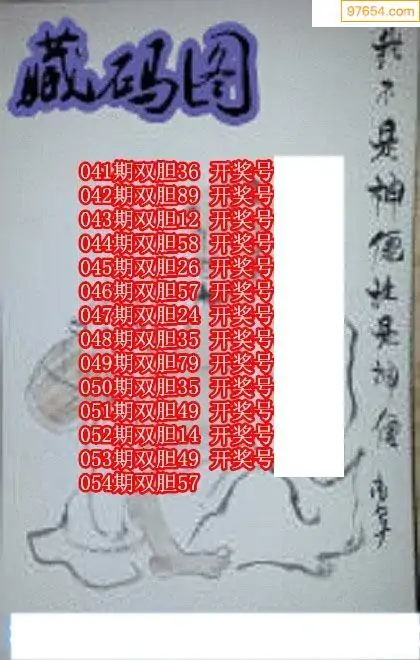 97654.com
藏码图
041期双胆36 开奖号
042期双胆89 开奖号
043期双胆12 开奖号
044期双胆58 开奖号
045期双胆26 开奖号
046期双胆57 开奖号
047期双胆24 开奖号
048期双胆35 开奖号
049期双胆79 开奖号
050期双胆35 开奖号
051期双胆49 开奖号
052期双胆14 开奖号
053期双胆49 开奖号
054期双胆57
我不是神僊谁是神僊